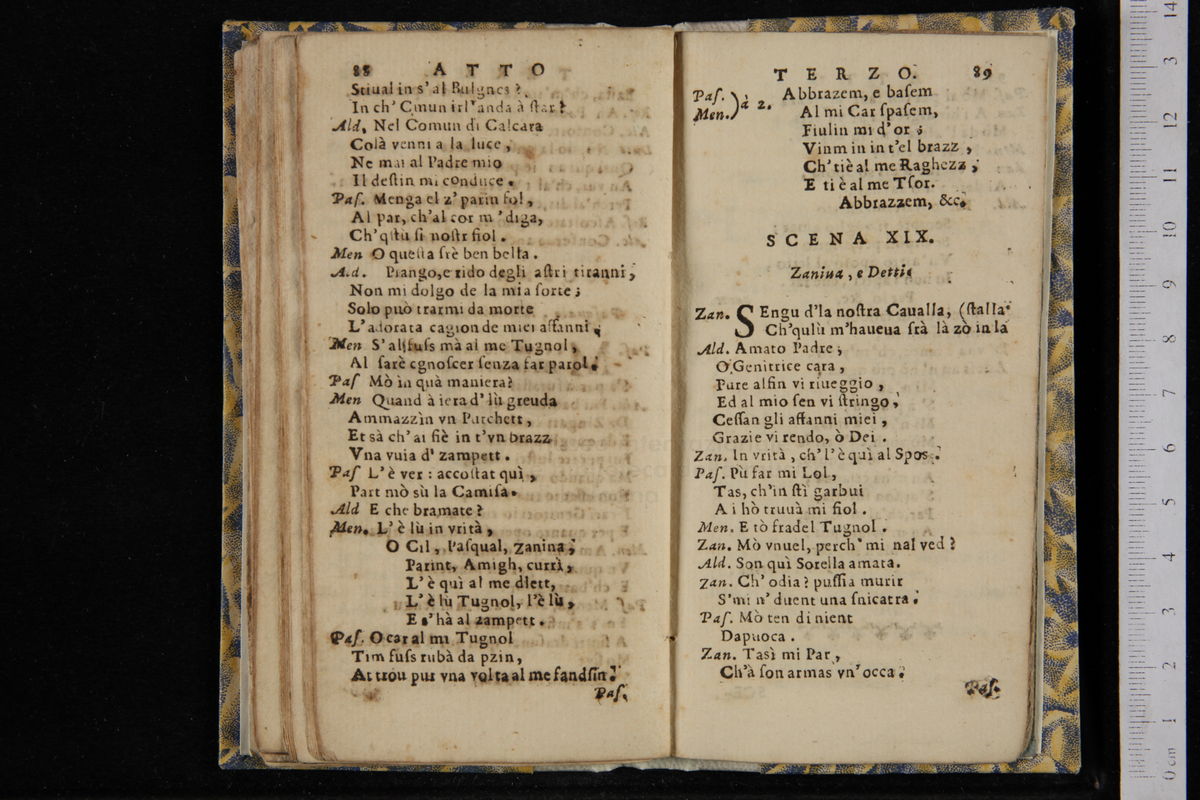 88 ATTO
Stiual in s' al Bulgnes ?
In ch' Cmun irl' anda à ſtar ?
Ald. Nel Comun di Calcara
Colà venni a la luce ,
Ne mai al Padre mio
Il deſtin mi conduce .
Paſ. Menga el z' parin ſol ,
Al par, ch'al cor m 'diga,
Ch'qſtù ſi noſtr fiol .
Men O queſta ſrè ben bella .
A.d. Piango,e rido degli aſtri tiranni ;
Non mi dolgo de la mia ſorte ;
Solo può trarmi da morte
L' adorata cagion de miei affanni ,
Men S' al fuſs mà al me Tugnol ,
Al ſarè cgnoſcer ſenza far parol .
Paſ Mò in quà maniera?
Men Quand à iera d' lù greuda
Ammazzìn vn Purchett ,
Et sà ch' ai ſiè in t'vn brazz
Vna vuia d' zampett .
Paſ L' è ver : accoſtat quì ,
Part mò sù la Camiſa .
Ald E che bramate ?
Men. L' è lù in vrità ,
O Cil , Paſqual, Zanina ,
Parint, Amigh, currì ,
L' è quì al me dlett,
L' è lù Tugnol, l'è lù ,
E s' hà al zampett .
Paſ. O car al mi Tugnol
Tim fuſs rubà da pzin ,
At trou pur vna volta al me fandſin !
Paſ.
TERZO. 89
Paſ. Men. ) à 2. Abbrazem, e baſem
Al mi Car ſpaſem,
Fiulin mi d'or ;
Vinm in in t'el brazz ,
Ch' tiè al me Raghezz ,
E ti è al me Tſor.
Abbrazzem, &c.
SCENA XIX.
Zanina , e Detti.
Zan. SEngu d'la noſtra Caualla, (ſtalla
Ch'qulù m'haueua ſrà là zò in la
Ald. Amato Padre ,
O Genitrice cara ,
Pure alfin vi riueggio ,
Ed al mio ſen vi ſtringo ,
Ceſſan gli affanni miei ,
Grazie vi rendo, ò Dei .
Zan. In vrità , ch' l' è quì al Spos .
Paſ. Pù far mi Lol ,
Tas, ch'in ſtì garbui
A i hò truuà mi fiol .
Men. E tò fradel Tugnol .
Zan. Mò vnuel, perch' mi nal ved ?
Ald. Son quì Sorella amata.
Zan. Ch' odia ? puſſia murir
S'mi n' duent una ſnicatra .
Paſ. Mò ten di nient
Dapuoca .
Zan. Tasì mi Par ,
Ch'à ſon armas vn' occa .
Paſ.